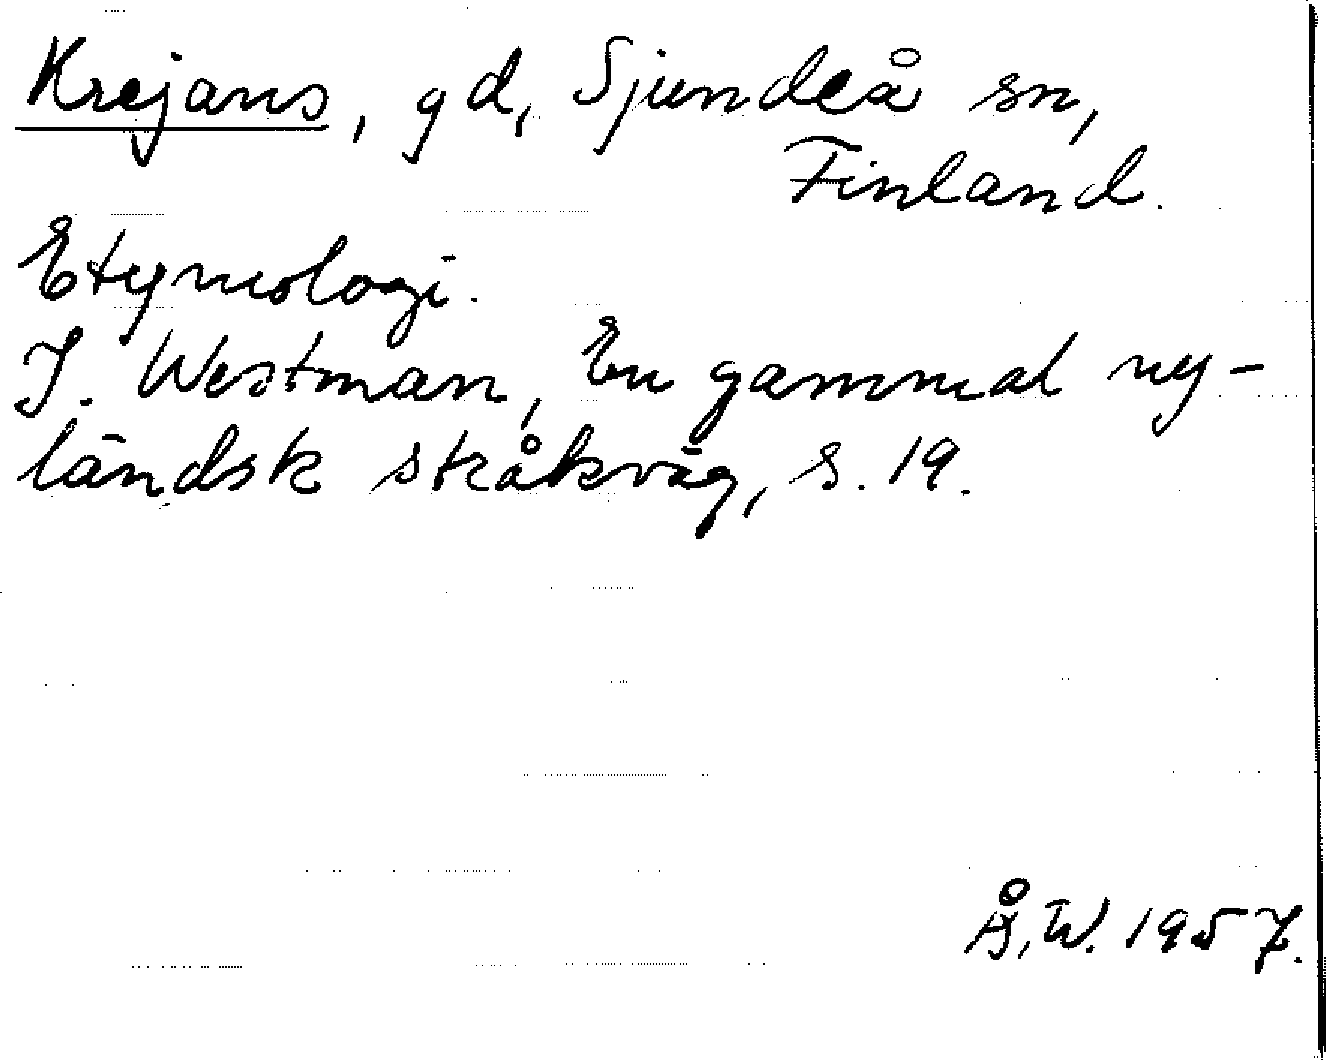 Krejans, gd, Sjundeå sn,
Finland.
Etymologi.
J. Westman, En gammal ny-
ländsk stråkväg, s. 19.
Å.W. 1957.